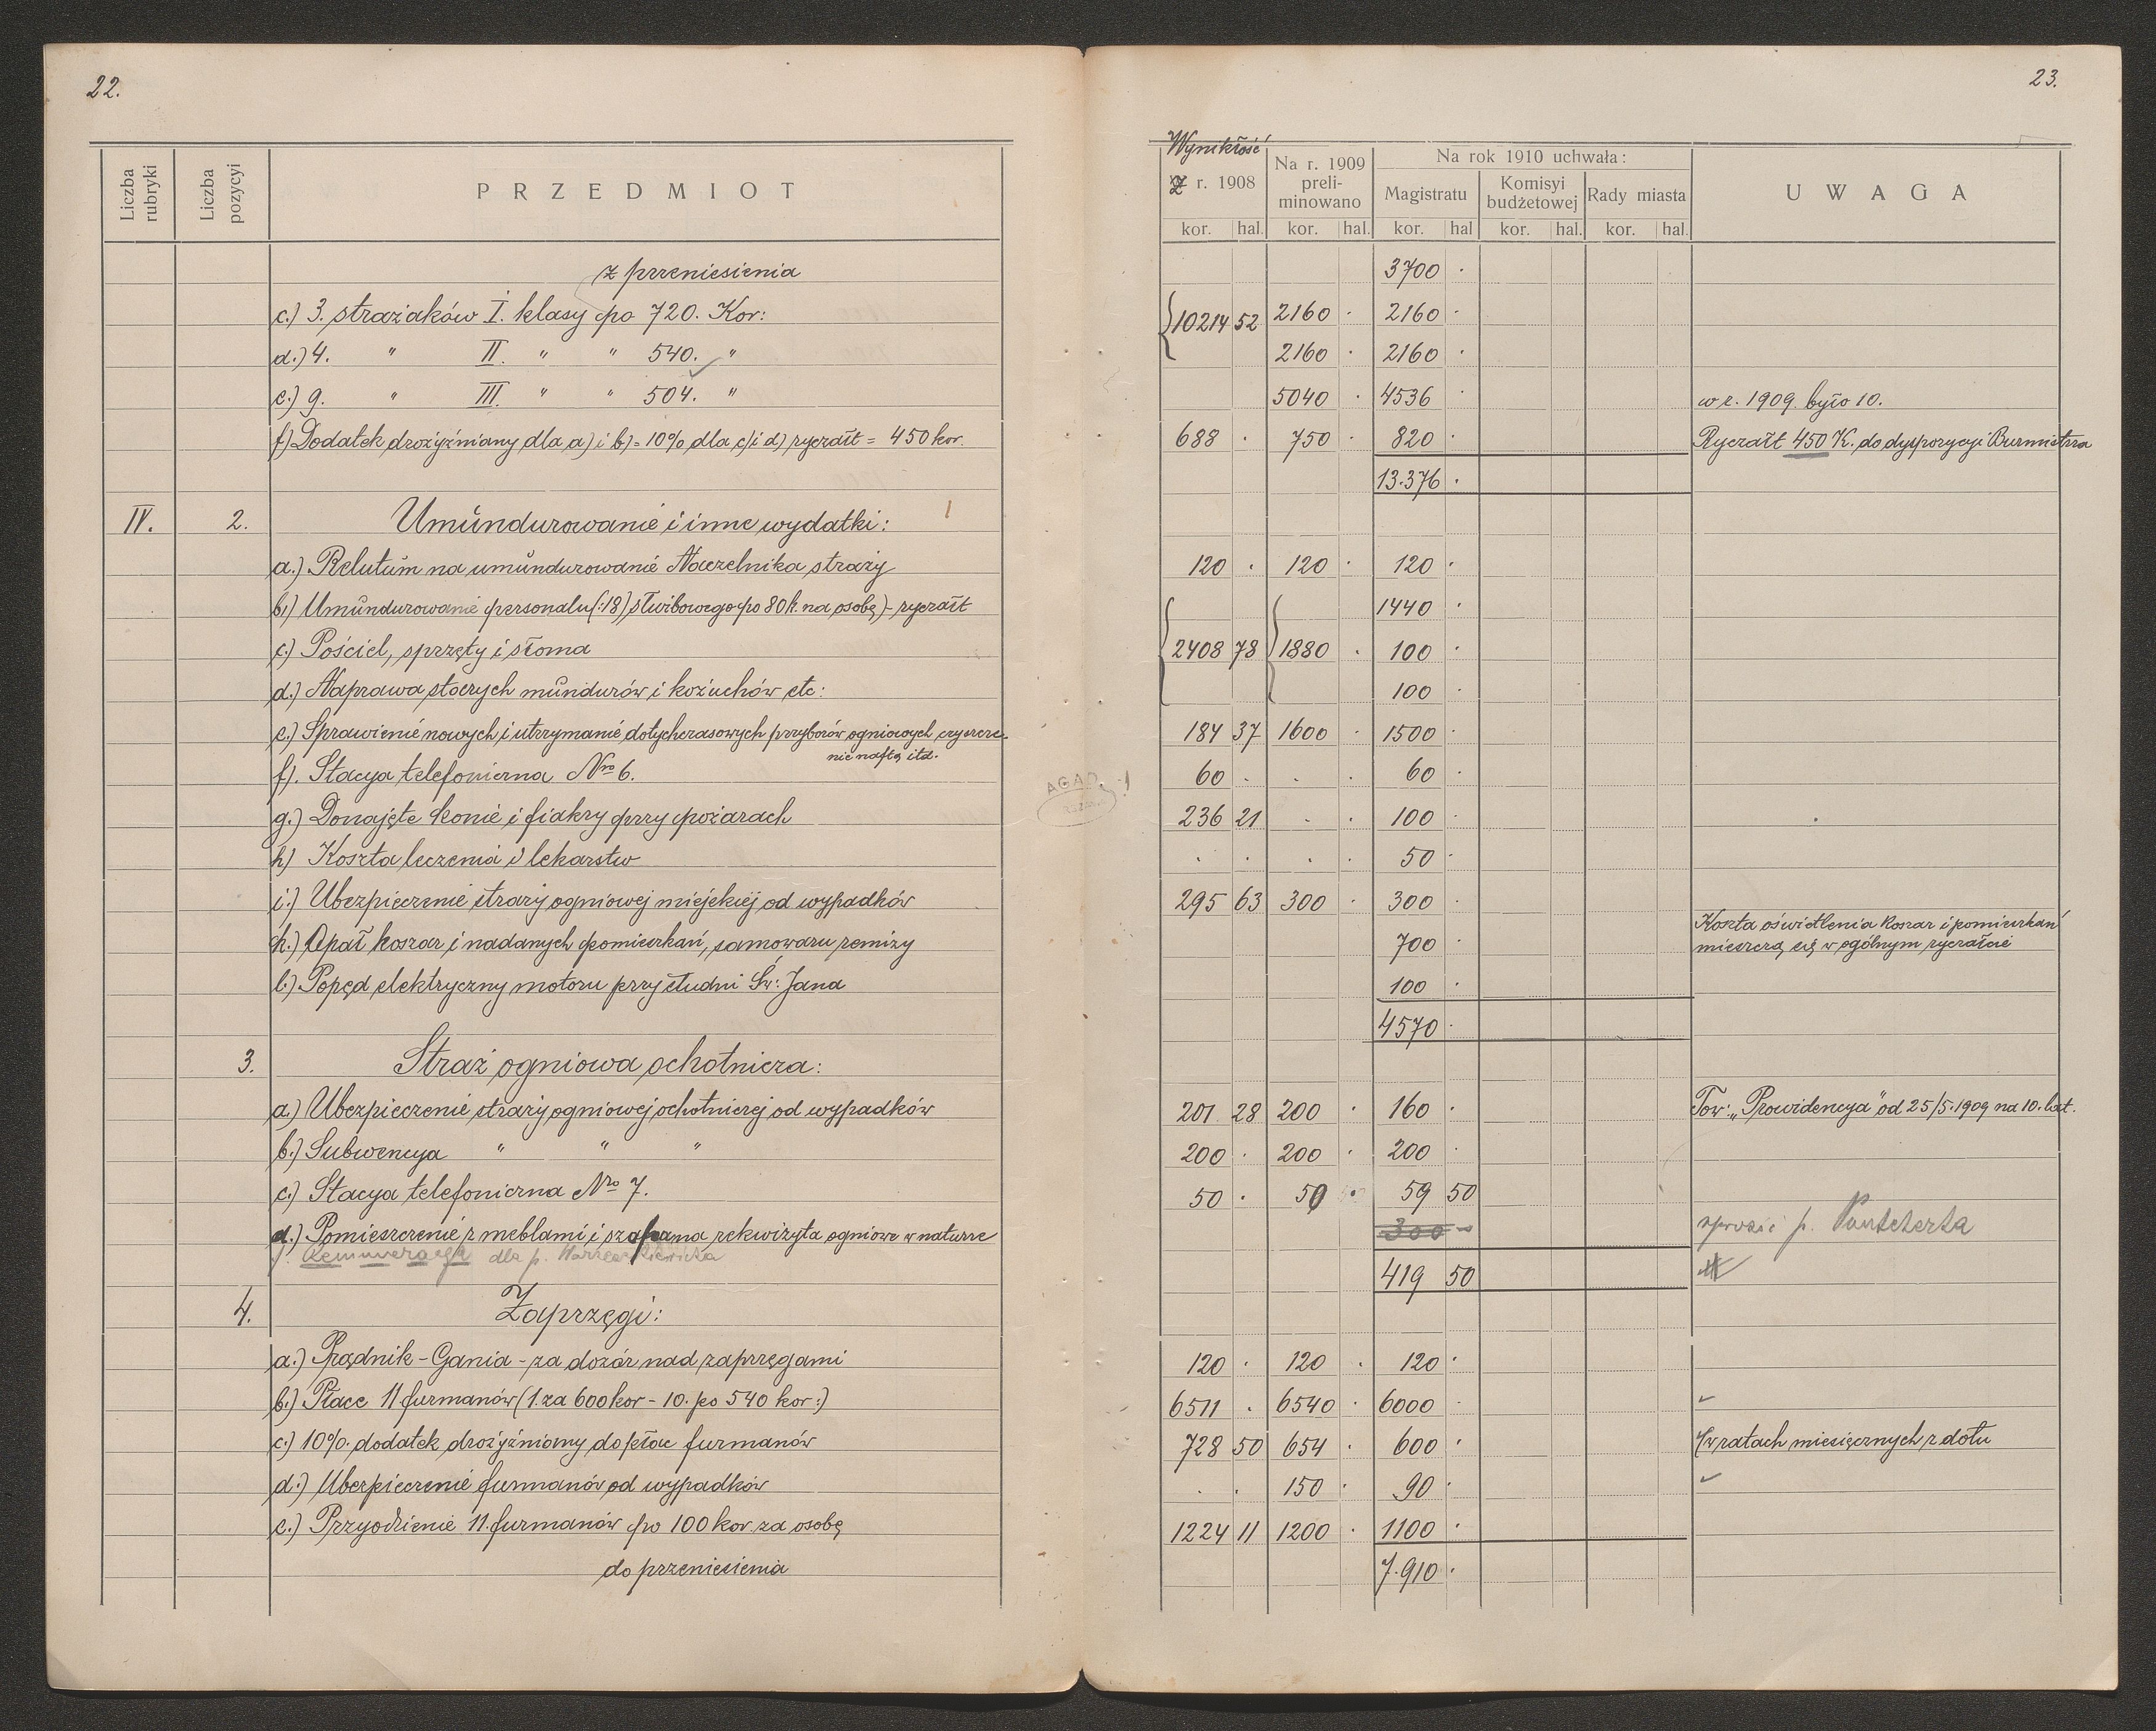 22.
Liczba rubryki
Liczba pozycyi
PRZEDMIOT
z przeniesienia
c.) 3. strażaków I. klasy po 720. Kor:
d.) 4. " II. " " 540. "
e.) 9. " III. " " 504. "
f) Dodatek drożyźniany dla a) i b) = 10% dla c) i d) ryczałt = 450 kor.
IV. 2. Umundurowanie i inne wydatki:
a.) Relutum na umundurowanie Naczelnika straży
b.) Umundurowanie personalu (:18) służbowego po 80 k. na osobę) - ryczałt
c.) Pościel, sprzęty i słoma
d.) Naprawa starych mundurów i kożuchów etc:
e.) Sprawienie nowych i utrzymanie dotychczasowych przyborów ogniowych czyszcze-
nie naftą itd.
f). Stacya telefoniczna Nro 6.
g.) Donajęte konie i fiakry przy pożarach
h) Koszta leczenia i lekarstw
i.) Ubezpieczenie straży ogniowej miejskiej od wypadków
k.) Opał koszar i nadanych pomieszkań, samowaru remizy
l.) Popęd elektryczny motoru przy studni Św: Jana
3. Straż ogniowa ochotnicza:
a.) Ubezpieczenie straży ogniowej ochotniczej od wypadków
b.) Subwencya " " "
c.) Stacya telefoniczna Nro 7.
d.) Pomieszczenie z meblami i szafa na rekwizyta ogniowe w naturze
Remuneracya dla p.
4. Zaprzęgi:
a.) Prądnik - Gania - za dozór nad zaprzęgami
b.) Płace 11 furmanów (1. za 600 kor - 10. po 540 kor:)
c.) 10%. dodatek drożyźniany do płac furmanów
d.) Ubezpieczenie furmanów od wypadków
e.) Przyodzienie 11. furmanów po 100 kor. za osobę
do przeniesienia
23.
Wynikłość
Z r. 1908
Na r. 1909 preli-minowano
Na rok 1910 uchwała:
Magistratu
Komisyi budżetowej
Rady miasta
UWAGA
kor. hal. kor. hal. kor. hal kor. hal. kor. hal.
3700 .
10214 52 2160 . 2160 .
2160 . 2160 .
5040 . 4536 w r. 1909. było 10.
688 . 750 . 820 . Ryczałt 450 K. do dyspozycyi Burmistrza
13.376 .
120 . 120 . 120 .
1440 .
2408 78 1880 . 100 .
100 .
184 37 1600 . 1500 .
60 . . . 60 .
AGAD
236 21 . . 100 .
. . . . 50 .
295 63 300 . 300 .
Koszta oświetlenia koszar i pomieszkań
700 . mieszczą się w ogólnym ryczałcie
100 .
4570 .
201 28 200 . 160 . Tow: „Prowidencya" od 25/5.1909 na 10. lat.
200 . 200 . 200 .
50 . 50 59 50
300 - sprosić p.
419 50
120 . 120 . 120 .
6511 . 6540 . 6000 .
728 50 654 . 600 . w ratach miesięcznych z dołu
. . 150 . 90 .
1224 11 1200 . 1100 .
7.910 .